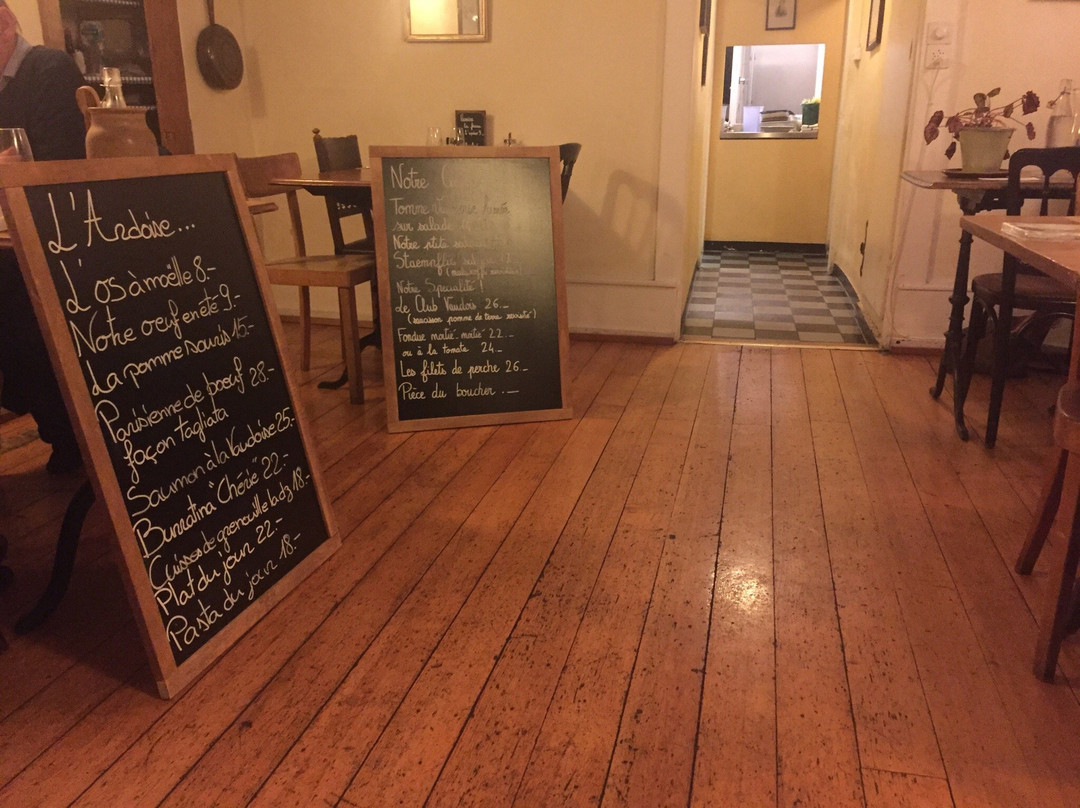 L'Ardoise...
L'os à moëlle 8.-
Notre oeuf en été 9.-
La pomme souris 15.-
Parisienne de boeuf
façon tagliata 28.-
Saumon à la Vaudoise 25.-
Burratina "Chérie" 22.-
Cuisses de grenouille la dz 18.-
Plat du jour 22.-
Pasta du jour 18.-
Notre
Tomme
sur salade
Notre ptite
Notre Spécialité !
Le Club Vaudois 26.-
(saucisson pomme de terre
Fondue moitié-moitié 22.-
ou à la tomate 24.-
Les filets de perche 26.-
Pièce du boucher .-